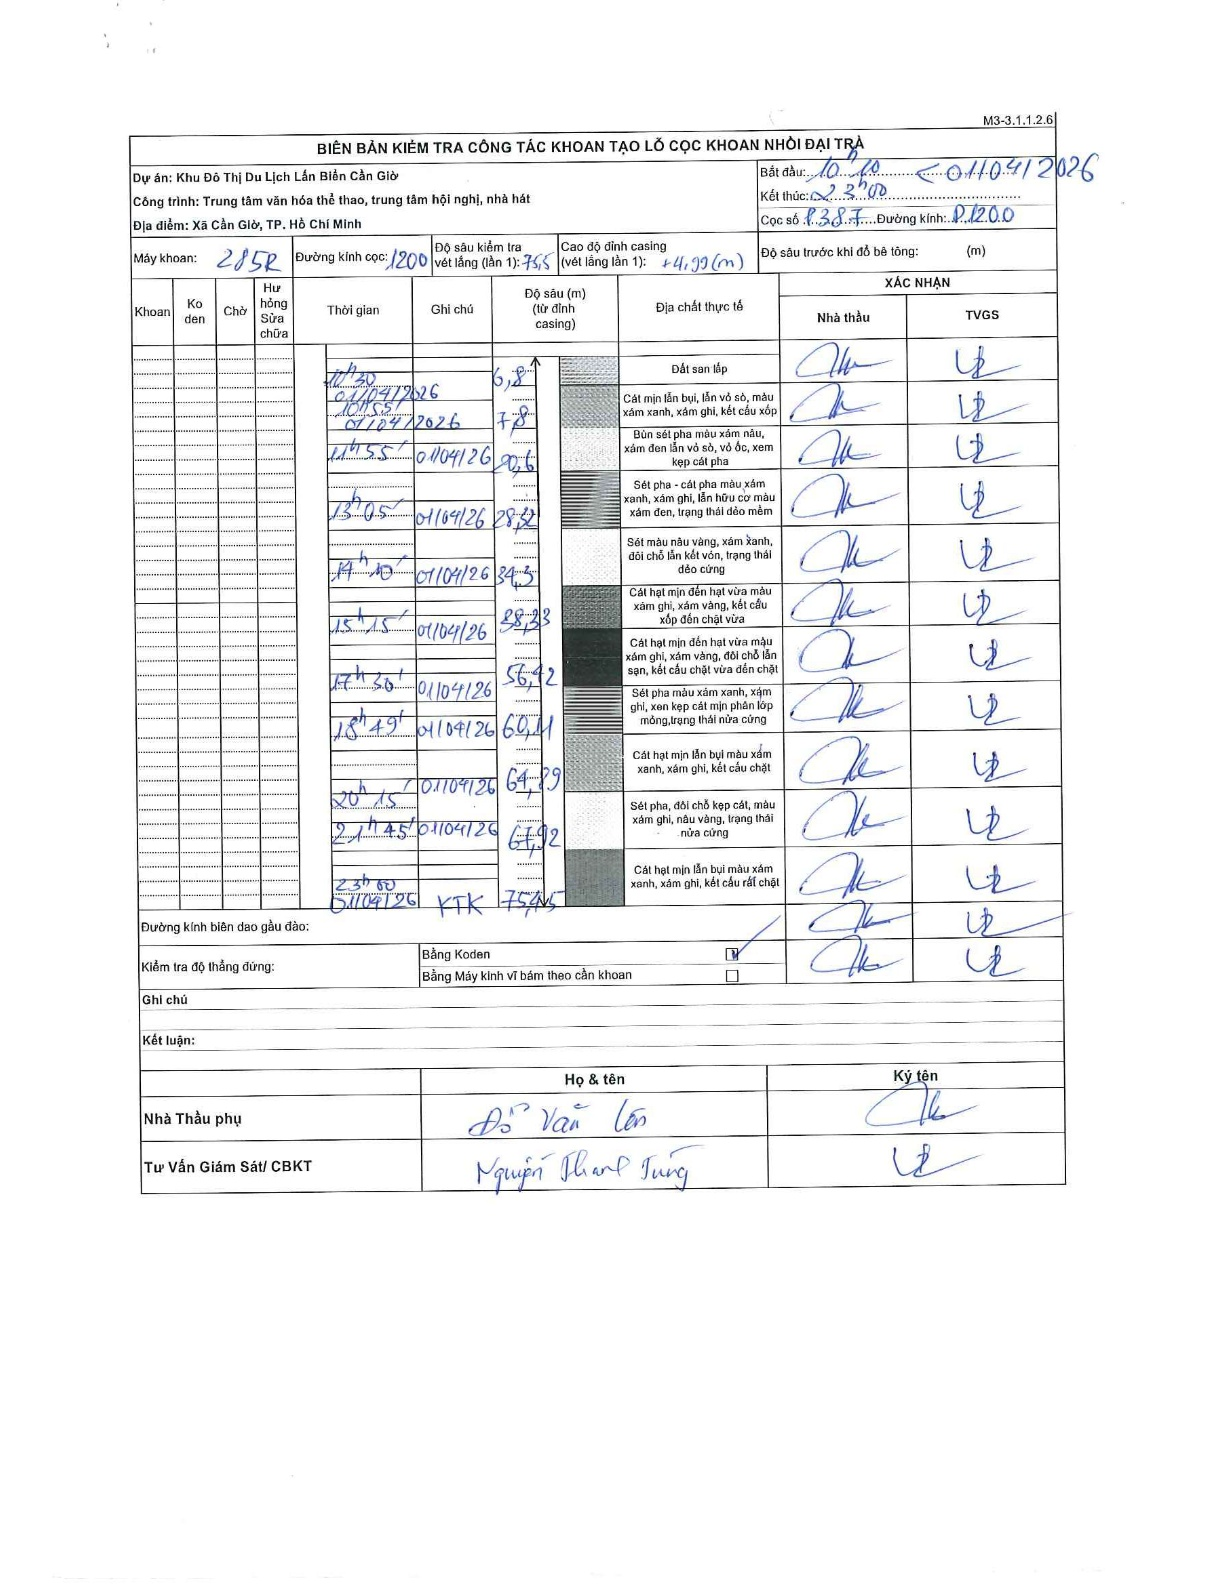 M3-3.1.1.2.6
BIÊN BẢN KIỂM TRA CÔNG TÁC KHOAN TẠO LỖ CỌC KHOAN NHỒI ĐẠI TRÀ
Dự án: Khu Đô Thị Du Lịch Lấn Biển Cần Giờ
Công trình: Trung tâm văn hóa thể thao, trung tâm hội nghị, nhà hát
Địa điểm: Xã Cần Giờ, TP. Hồ Chí Minh
Bắt đầu: 10h10 01/04/2026
Kết thúc: 23h00
Cọc số P387 Đường kính: D1200
Máy khoan: 285R
Đường kính cọc: 1200
Độ sâu kiểm tra vét lắng (lần 1): 75,5
Cao độ đỉnh casing (vét lắng lần 1): +4,99 (m)
Độ sâu trước khi đổ bê tông: (m)
Khoan Ko den Chờ Hư hỏng Sửa chữa Thời gian Ghi chú Độ sâu (m) (từ đỉnh casing) Địa chất thực tế XÁC NHẬN
Nhà thầu TVGS
10h30 01/04/2026 6,8 Đất san lấp
10h55 01/04/2026 7,8 Cát mịn lẫn bụi, lẫn vỏ sò, màu xám xanh, xám ghi, kết cấu xốp
11h55' 01/04/26 20,6 Bùn sét pha màu xám nâu, xám đen lẫn vỏ sò, vỏ ốc, xem kẹp cát pha
13h05' 01/04/26 Sét pha - cát pha màu xám xanh, xám ghi, lẫn hữu cơ màu xám đen, trạng thái dẻo mềm
14h10' 01/04/26 34,3 Sét màu nâu vàng, xám xanh, đôi chỗ lẫn kết vón, trạng thái dẻo cứng
15h15' 01/04/26 38,33 Cát hạt mịn đến hạt vừa màu xám ghi, xám vàng, kết cấu xốp đến chặt vừa
17h30' 01/04/26 56,42 Cát hạt mịn đến hạt vừa màu xám ghi, xám vàng, đôi chỗ lẫn sạn, kết cấu chặt vừa đến chặt
18h49' 01/04/26 60,11 Sét pha màu xám xanh, xám ghi, xen kẹp cát mịn phân lớp mỏng,trạng thái nửa cứng
20h15' 01/04/26 64,89 Cát hạt mịn lẫn bụi màu xám xanh, xám ghi, kết cấu chặt
21h45' 01/04/26 67,92 Sét pha, đôi chỗ kẹp cát, màu xám ghi, nâu vàng, trạng thái nửa cứng
23h00 01/04/26 KTK Cát hạt mịn lẫn bụi màu xám xanh, xám ghi, kết cấu rất chặt
Đường kính biên dao gầu đào:
Kiểm tra độ thẳng đứng:
Bằng Koden
Bằng Máy kinh vĩ bám theo cần khoan
Ghi chú
Kết luận:
Họ & tên Ký tên
Nhà Thầu phụ Đỗ Văn
Tư Vấn Giám Sát/ CBKT Nguyễn Thanh Tùng